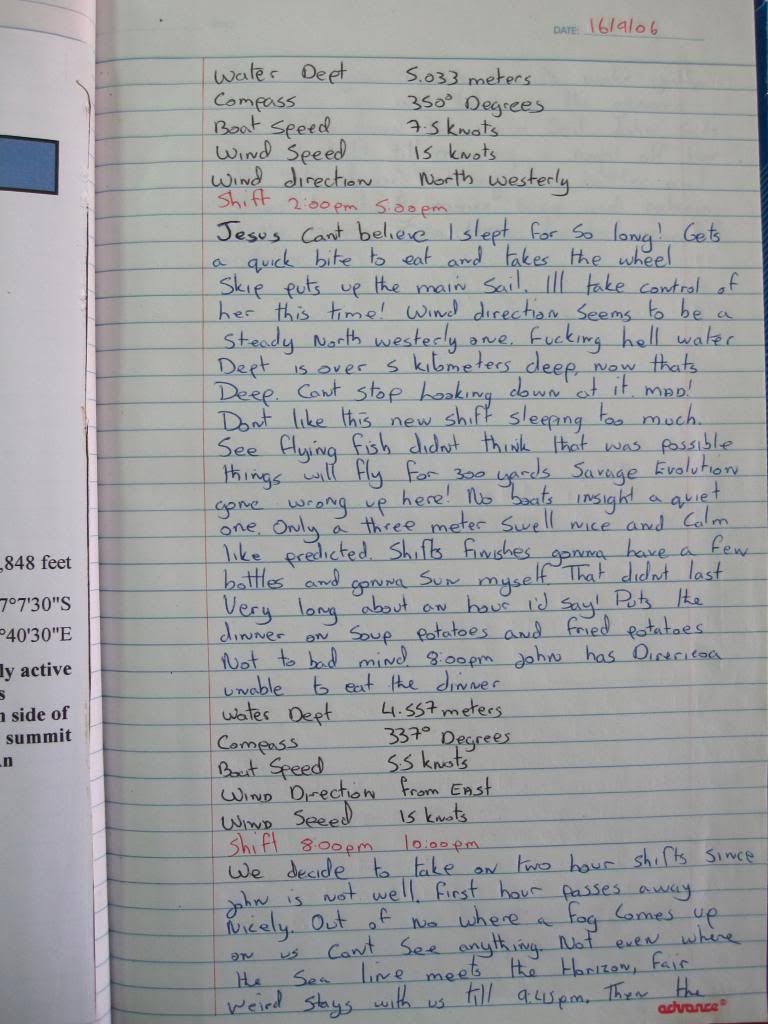 DATE: 16/9/06
Water Dept 5.033 meters
Compass 350° Degrees
Boat Speed 7.5 knots
Wind Speed 15 knots
Wind direction North Westerly
Shift 2:00pm 5:00pm
Jesus Cant believe I slept for so long! Gets
a quick bite to eat and takes the wheel
Skip puts up the main Sail. Ill take control of
her this time! Wind direction Seems to be a
Steady North westerly one. Fucking hell water
Dept is over 5 kilometers deep, now thats
Deep. Cant stop looking down at it. MAD!
Dont like this new shift sleeping too much.
See flying fish didnt think that was possible
things will fly for 300 yards Savage Evolution
gone wrong up here! No boats insight a quiet
one. Only a three meter Swell nice and Calm
like predicted. Shifts finishes gonna have a few
bottles and gonna Sun myself That didnt last
Very long about an hour i'd say! Puts the
dinner on Soup potatoes and fried potatoes
Not to bad mind. 8:00pm John has Diriricoa
unable to eat the dinner
Water Dept 4.557 meters
Compass 337° Degrees
Boat Speed 5.5 knots
Wind Direction from EAST
Wind Seeed 15 knots
Shift 8:00pm 10:00pm
We decide to take on two hour shifts Since
John is not well. First hour passes away
Nicely. Out of no where a fog Comes up
on us Cant See anything. Not even where
the Sea line meets the Horizon, fair
Weird Stays with us till 9:45pm. Then the
advance®
,848 feet
7°7'30"S
°40'30"E
ly active
s
n side of
summit